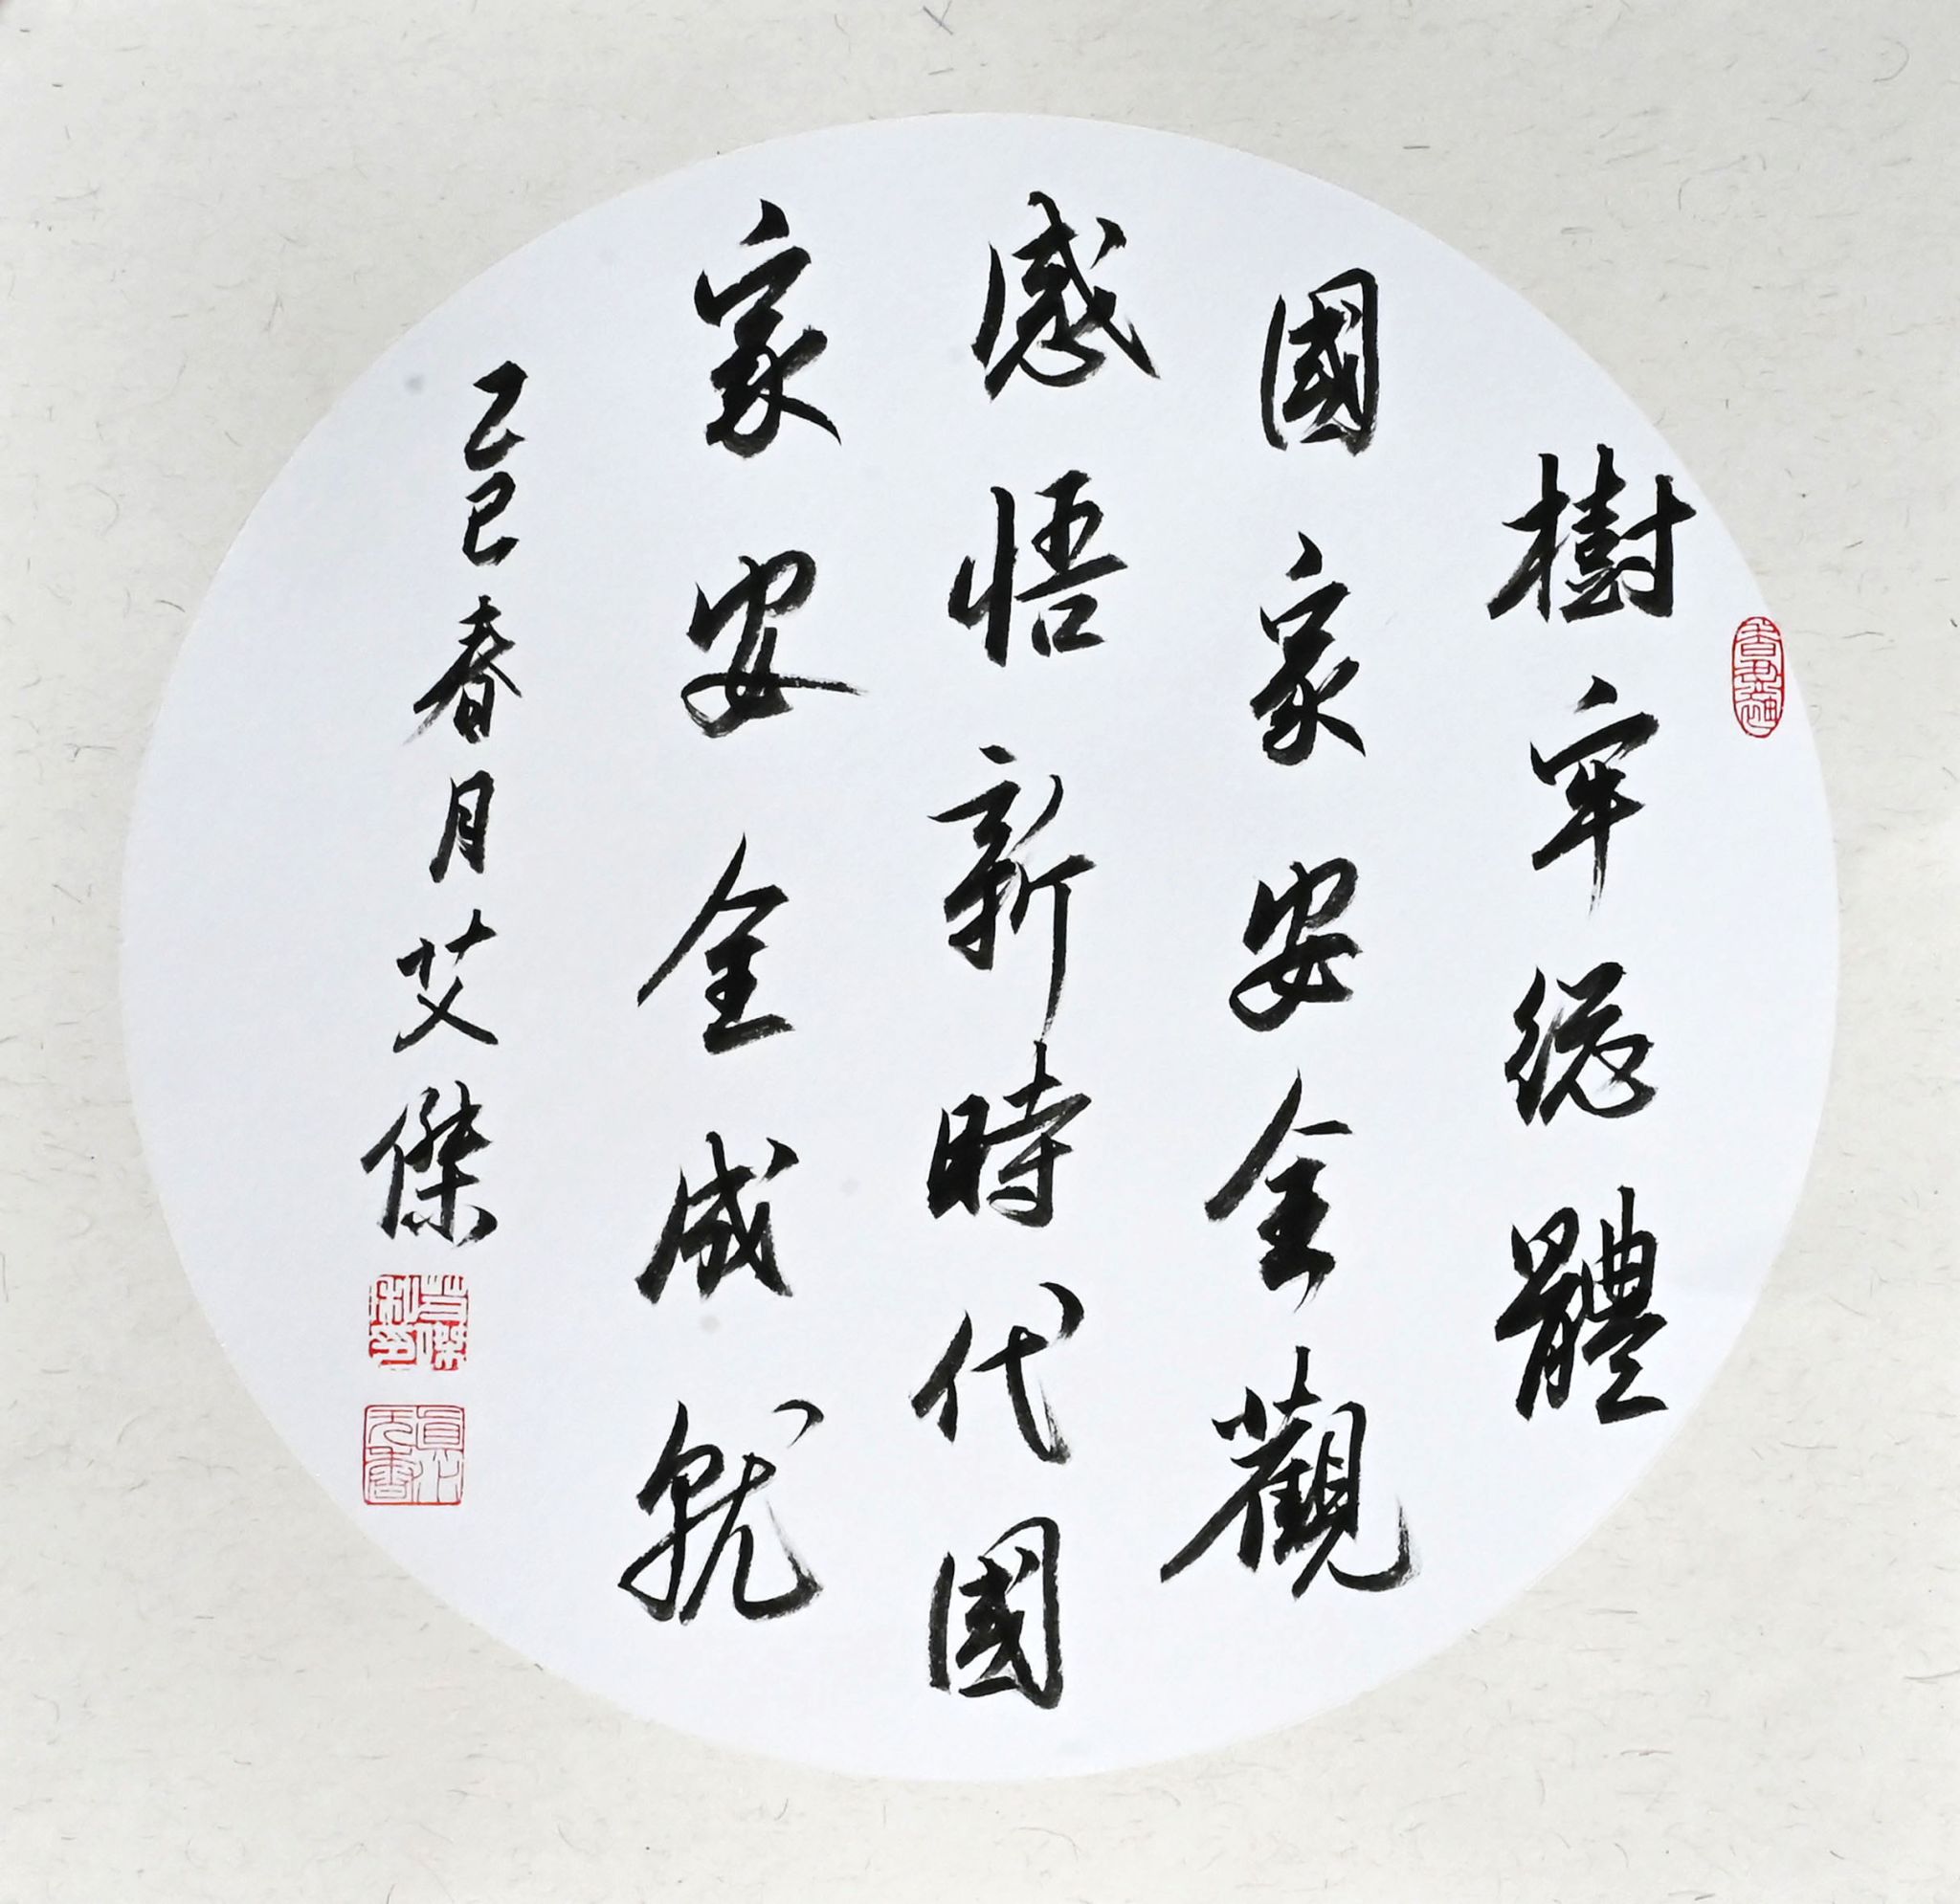 樹牢總體
國家安全觀
感悟新時代國
家安全成就
乙巳春月艾傑